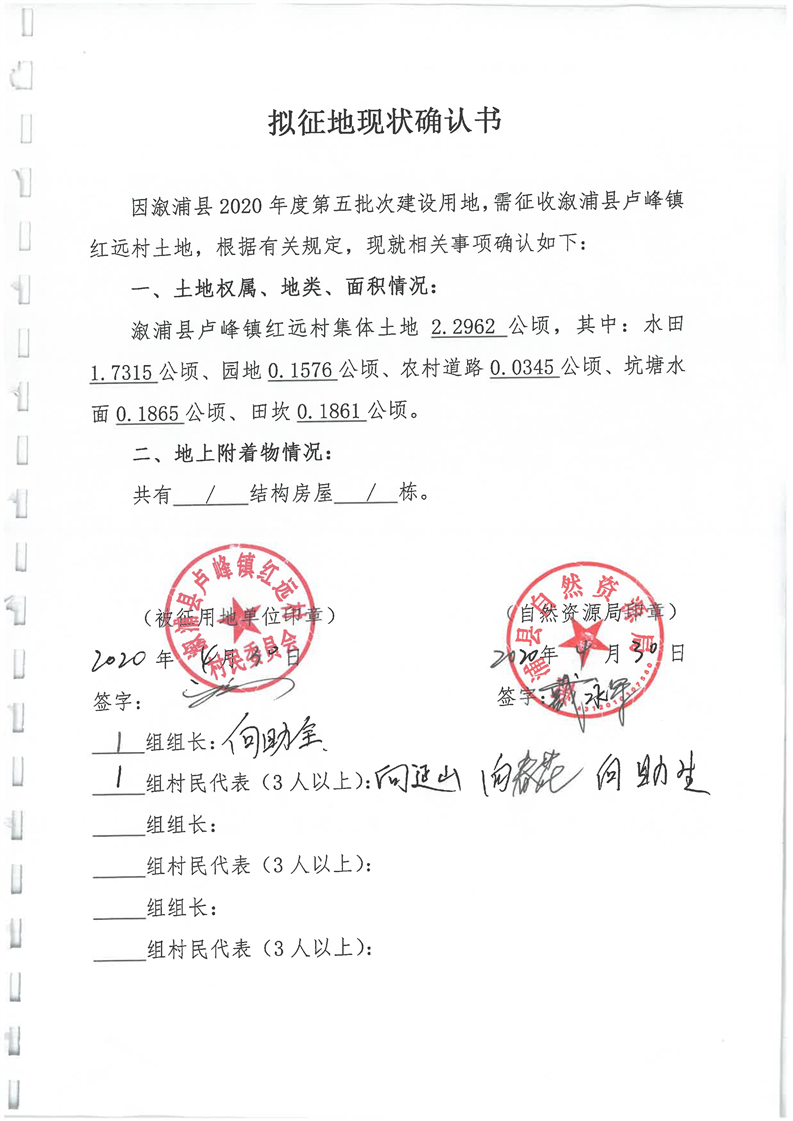 拟征地现状确认书
因溆浦县 2020 年度第五批次建设用地,需征收溆浦县卢峰镇
红远村土地，根据有关规定，现就相关事项确认如下：
一、土地权属、地类、面积情况：
溆浦县卢峰镇红远村集体土地 2.2962 公顷，其中：水田
1.7315 公顷、园地 0.1576 公顷、农村道路 0.0345 公顷、坑塘水
面 0.1865 公顷、田坎 0.1861 公顷。
二、地上附着物情况：
共有 / 结构房屋 / 栋。
溆浦县卢峰镇红远村
村民委员会
溆浦县自然资源局
（被征用地单位印章） （自然资源局印章）
2020 年 4月 30日 2020年 4 月 30 日
签字： 签字：
4312010107580
1 组组长：向助全
1 组村民代表（3 人以上）：向延山 向春花 向助生
组组长：
组村民代表（3 人以上）：
组组长：
组村民代表（3 人以上）：